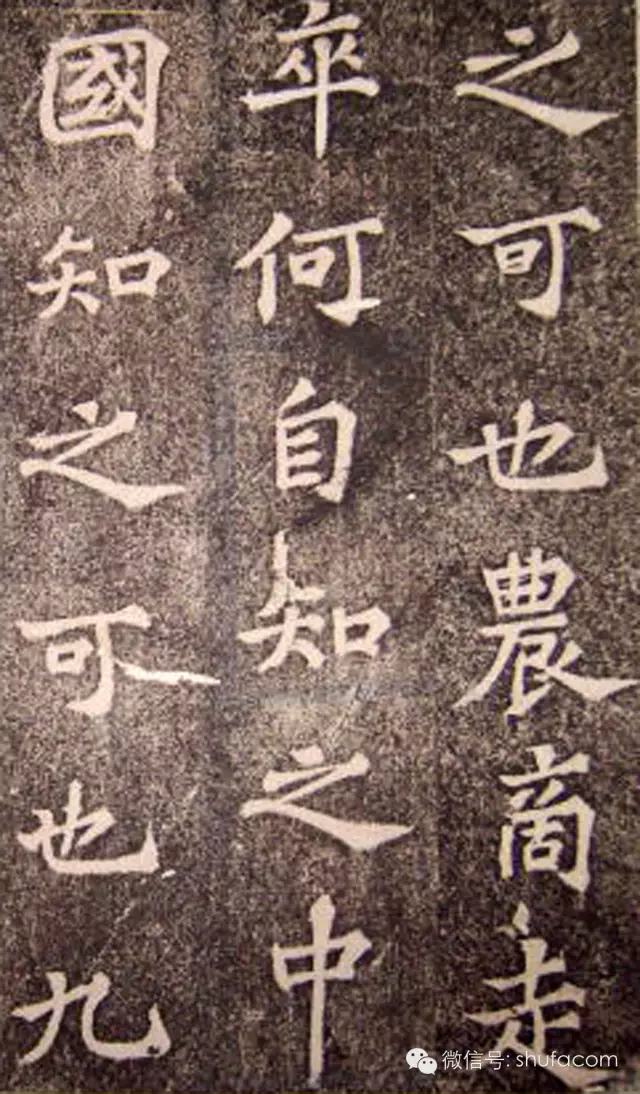 之可也農商走
卒何自知之中
國知之可也九
微信号: shufacom